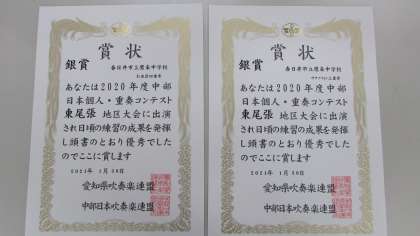 賞状
銀賞
春日井市立
中学校
あなたは2020年度中部
日本個人・重奏コンテスト
東尾張 地区大会に出演
され日頃の練習の成果を発揮
し頭書のとおり優秀でした
のでここに賞します
2021年 1月30日
愛知県吹奏楽連盟
中部日本吹奏楽連盟
賞状
銀賞
春日井市立
中学校
あなたは2020年度中部
日本個人・重奏コンテスト
東尾張 地区大会に出演
され日頃の練習の成果を発揮
し頭書のとおり優秀でした
のでここに賞します
2021年 1月30日
愛知県吹奏楽連盟
中部日本吹奏楽連盟